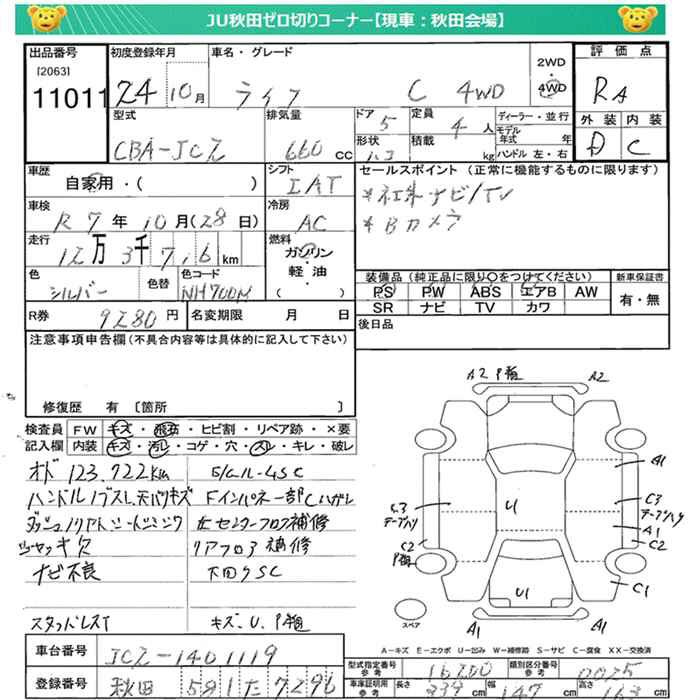 JU秋田ゼロ切りコーナー【現車：秋田会場】
出品番号 初度登録年月 車名・グレード 2WD・4WD 評価点
[2063]
11011 24 10月 ライフ C 4WD RA
型式 排気量 ドア 定員 ディーラー・並行 外装 内装
CBA-JC2 660 CC 5 4人 モデル年式 年 D C
形状 積載 kg ハンドル 左・右
車歴 シフト セールスポイント (正常に機能するものに限ります)
自家用・( ) IAT *社外ナビ/TV
車検 冷房 *Bカメラ
R7年10月(28日) AC
走行 燃料
12万3千7,6km ガソリン・軽油・( )
色 色替 色コード 装備品(純正品に限り○をつけてください) 新車保証書
シルバー NH700M PS PW ABS エアB AW 有・無
SR ナビ TV カワ
R券 9280円 名変期限 月 日 後日品
注意事項申告欄(不具合内容等は具体的に記入して下さい)
修復歴 有 [箇所 ]
検査員記入欄 FW キズ・飛石・ヒビ割・リペア跡・×要
内装 キズ・汚レ・コゲ・穴・スレ・キレ・破レ
オド 123,722km
ナビ不良
スタッドレスT
左センターフロア補修
リアフロア補修
下回りSC
キズ・U、P箇
A2 P箇 A2
A1
C3 テープハリ
C3 テープハリ
U
A1
C2 P箇
C2
U1
C1
スペア
A1 A1
A-キズ E-エクボ U-凹み W-補修跡 S-サビ C-腐食 XX-交換済
車台番号 JC2-1401119
登録番号 秋田 581 た 7296
型式指定番号 参考 16200 類別区分番号 参考 0025
車庫証明用 参考 長さ 339cm 幅 147cm 高さ cm